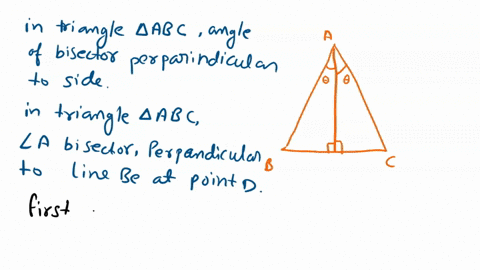 in triangle ΔABC, angle
of bisector perparindicular
to side.
in triangle ΔABC,
∠A bisector, Perpandicular
to line Be at point D.
first
A
θ θ
B
C